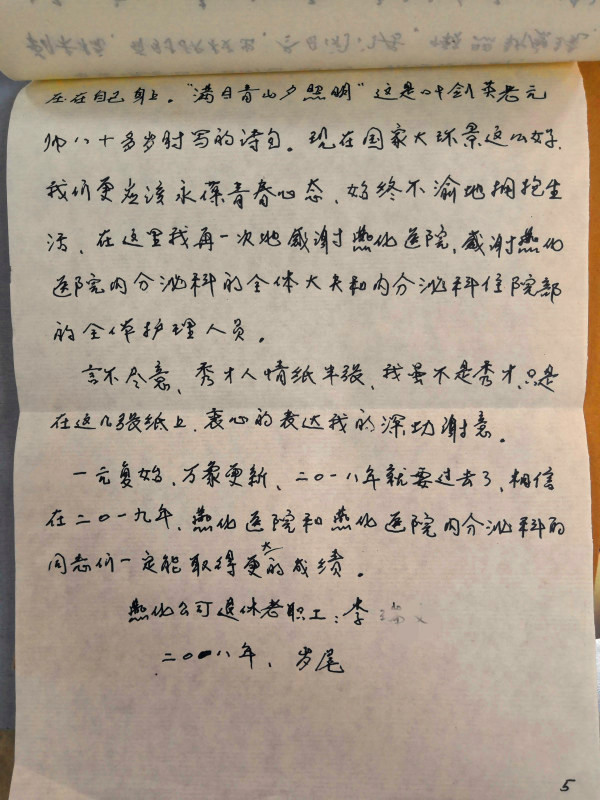 在自己身上。“满目青山夕照明”这是叶剑英老元
帅八十多岁时写的诗句。现在国家大环景这么好、
我们更应该永葆青春心态、始终不渝地拥抱生
活、在这里我再一次地感谢燕化医院、感谢燕化
医院内分泌科的全体大夫和内分泌科住院部
的全体护理人员。
言不尽意、秀才人情纸半张、我虽不是秀才、只是
在这几张纸上、衷心的表达我的深切谢意。
一元复始、万象更新、二〇一八年就要过去了、相信
在二〇一九年、燕化医院和燕化医院内分泌科的
同志们一定能取得更大的成绩。
燕化公司退休老职工：李
二〇一八年、岁尾
5